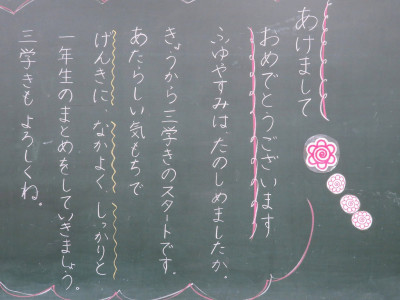 あけまして
おめでとうございます
ふゆやすみは、たのしめましたか。
きょうから三学きのスタートです。
あたらしい気もちで
げんきに、なかよく、しっかりと
一年生のまとめをしていきましょう。
三学きも よろしくね。